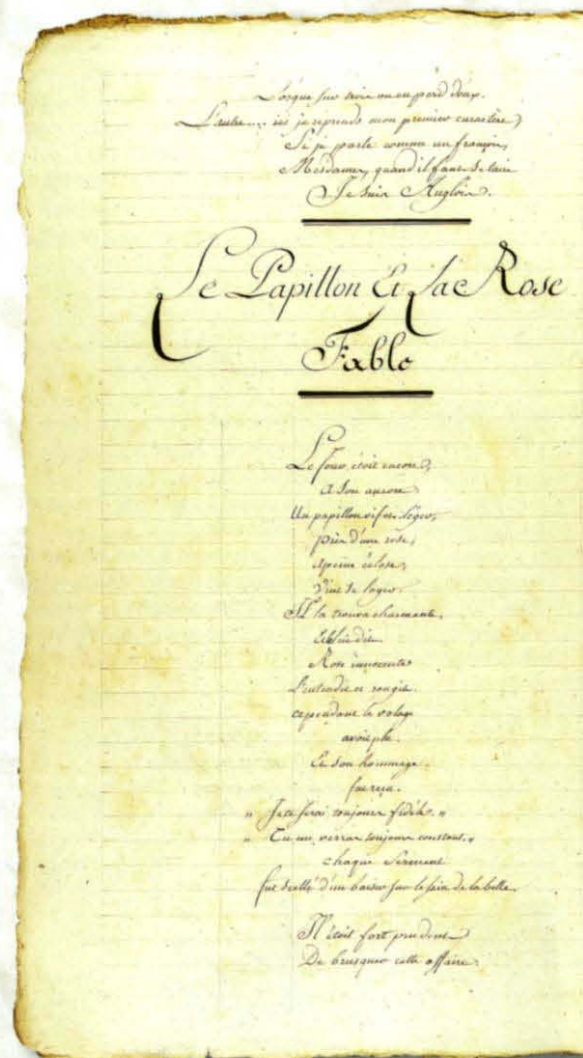 Lorsque sur trois on en perd deux.
L'autre... ici je reprends mon premier caractère,
Si je parle comme un françois,
Mesdames, quand il faut se taire
Je suis Anglois.
Le Papillon Et La Rose
Fable
Le jour étoit encore,
A son aurore
Un papillon vif et léger,
près d'une rose,
apeine éclose,
Vint se loger.
Il la trouva charmante,
Et le lui dit.
Rose innocente
L'entendit et rougit.
cependant le volage
avoit plu.
Et son hommage
fut reçu.
" Je te serai toujours fidèle. "
" Tu me verras toujours constant. "
chaque Serment
fut scellé d'un baiser sur le sein de la belle.
Il étoit fort prudent
De brusquer cette affaire